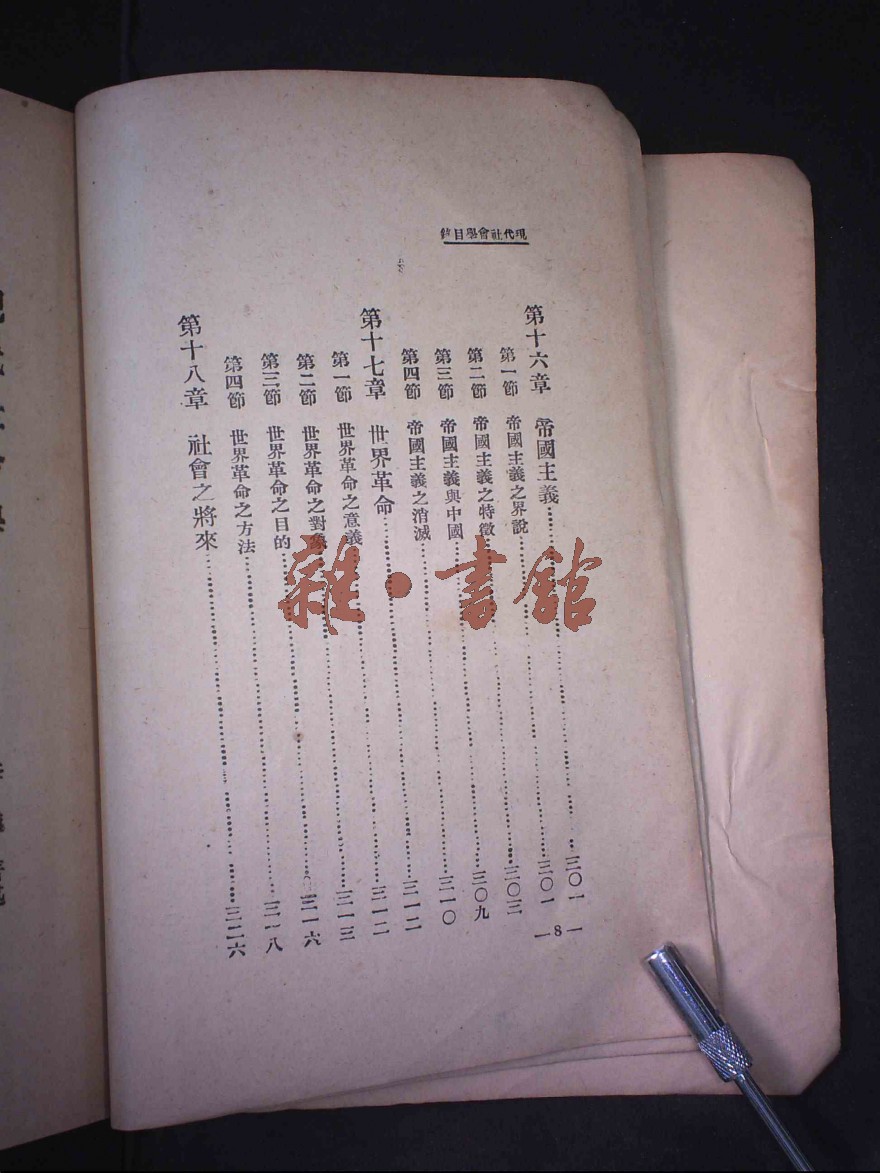 現代社會學目錄
第十六章 帝國主義 三〇一
第一節 帝國主義之界說 三〇一
第二節 帝國主義之特徵 三〇三
第三節 帝國主義與中國 三〇九
第四節 帝國主義之消滅 三一〇
第十七章 世界革命 三一二
第一節 世界革命之意義 三一二
第二節 世界革命之對象 三一三
第三節 世界革命之目的 三一六
第四節 世界革命之方法 三一八
第十八章 社會之將來 三二六
— 8 —
雜·書館